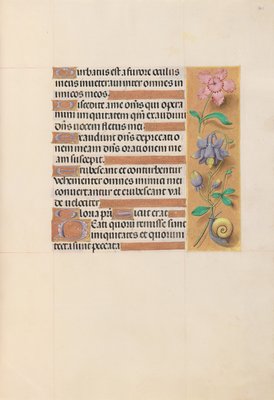 Turbatus est a furore oculus
meus inueteraui inter omnes in
imicos meos.
Discedite a me om̄s qui opera
mini iniquitatem qm̄ exaudiuit
dn̄s vocem fletus mei.
Exaudiuit dn̄s deprecatio
nem meam dn̄s orationem me
am suscepit.
Erubescant et conturbentur
vehementer omnes inimici mei
conuertantur et erubescant val
de velociter.
Gloria pr̄i Sicut erat
Beati quorū remisse sunt
iniquitates et quorum
tecta sunt peccata